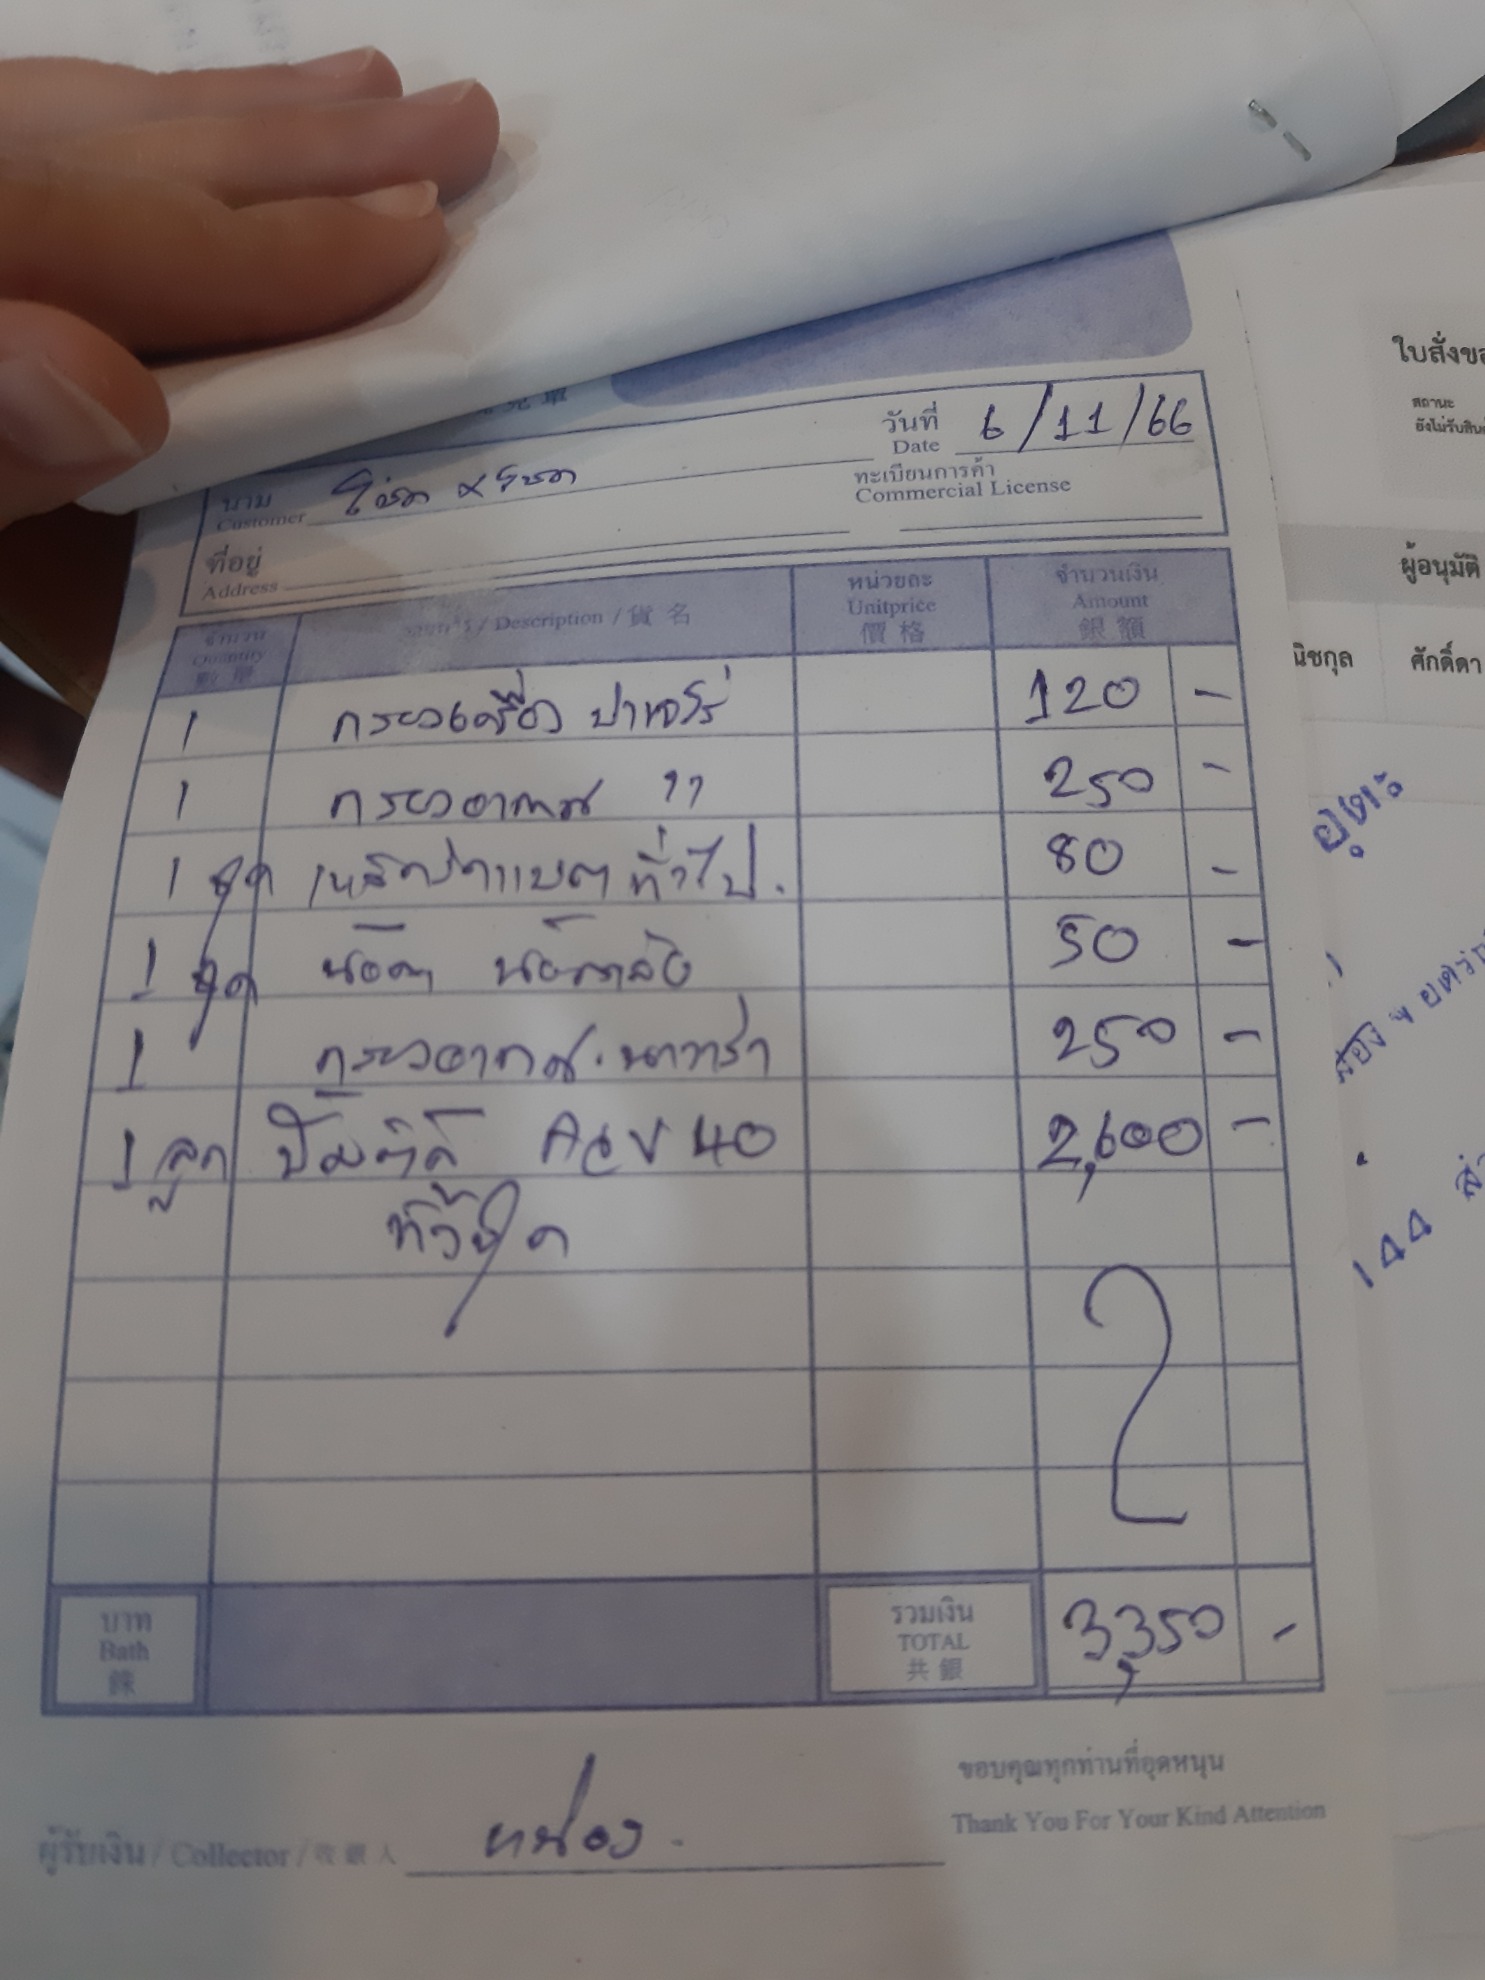 วันที่ 6/11/66
Date
นาม
Customer
ทะเบียนการค้า
Commercial License
ที่อยู่
Address
จำนวน รายการ / Description / 貨名 หน่วยละ จำนวนเงิน
Quantity Unitprice Amount
數量 價格 銀額
1 กรองเครื่อง ปาเจโร่ 120 -
1 กรองอากาศ " 250 -
1 ชุด เหล็กรัดแบตทั่วไป. 80 -
1 ชุด น๊อต 50 -
1 กรองอากาศ. นาวาร่า 250 -
1 ลูก ปั๊มติ๊ก 40 2,600 -
ทั้งชุด
บาท รวมเงิน 3,350 -
Bath TOTAL
銖 共銀
ขอบคุณทุกท่านที่อุดหนุน
Thank You For Your Kind Attention
ผู้รับเงิน / Collector / 收銀人 หน่อง.
สถานะ
ผู้อนุมัติ
นิชกุล ศักดิ์ดา